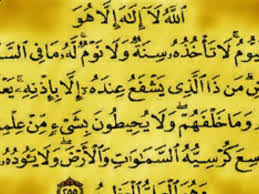 اللَّهُ لَا إِلَٰهَ إِلَّا هُوَ
يُّومُ لَا تَأْخُذُهُ سِنَةٌ وَلَا نَوْمٌ لَّهُ مَا فِي السَّ
ضِ مَن ذَا الَّذِي يَشْفَعُ عِندَهُ إِلَّا بِإِذْنِهِ يَعْ
وَمَا خَلْفَهُمْ وَلَا يُحِيطُونَ بِشَيْءٍ مِّنْ عِلْمِ
سِعَ كُرْسِيُّهُ السَّمَاوَاتِ وَالْأَرْضَ وَلَا يَئُودُهُ
وَهُوَ الْعَلِيُّ الْعَظِيمُ ٢٥٥